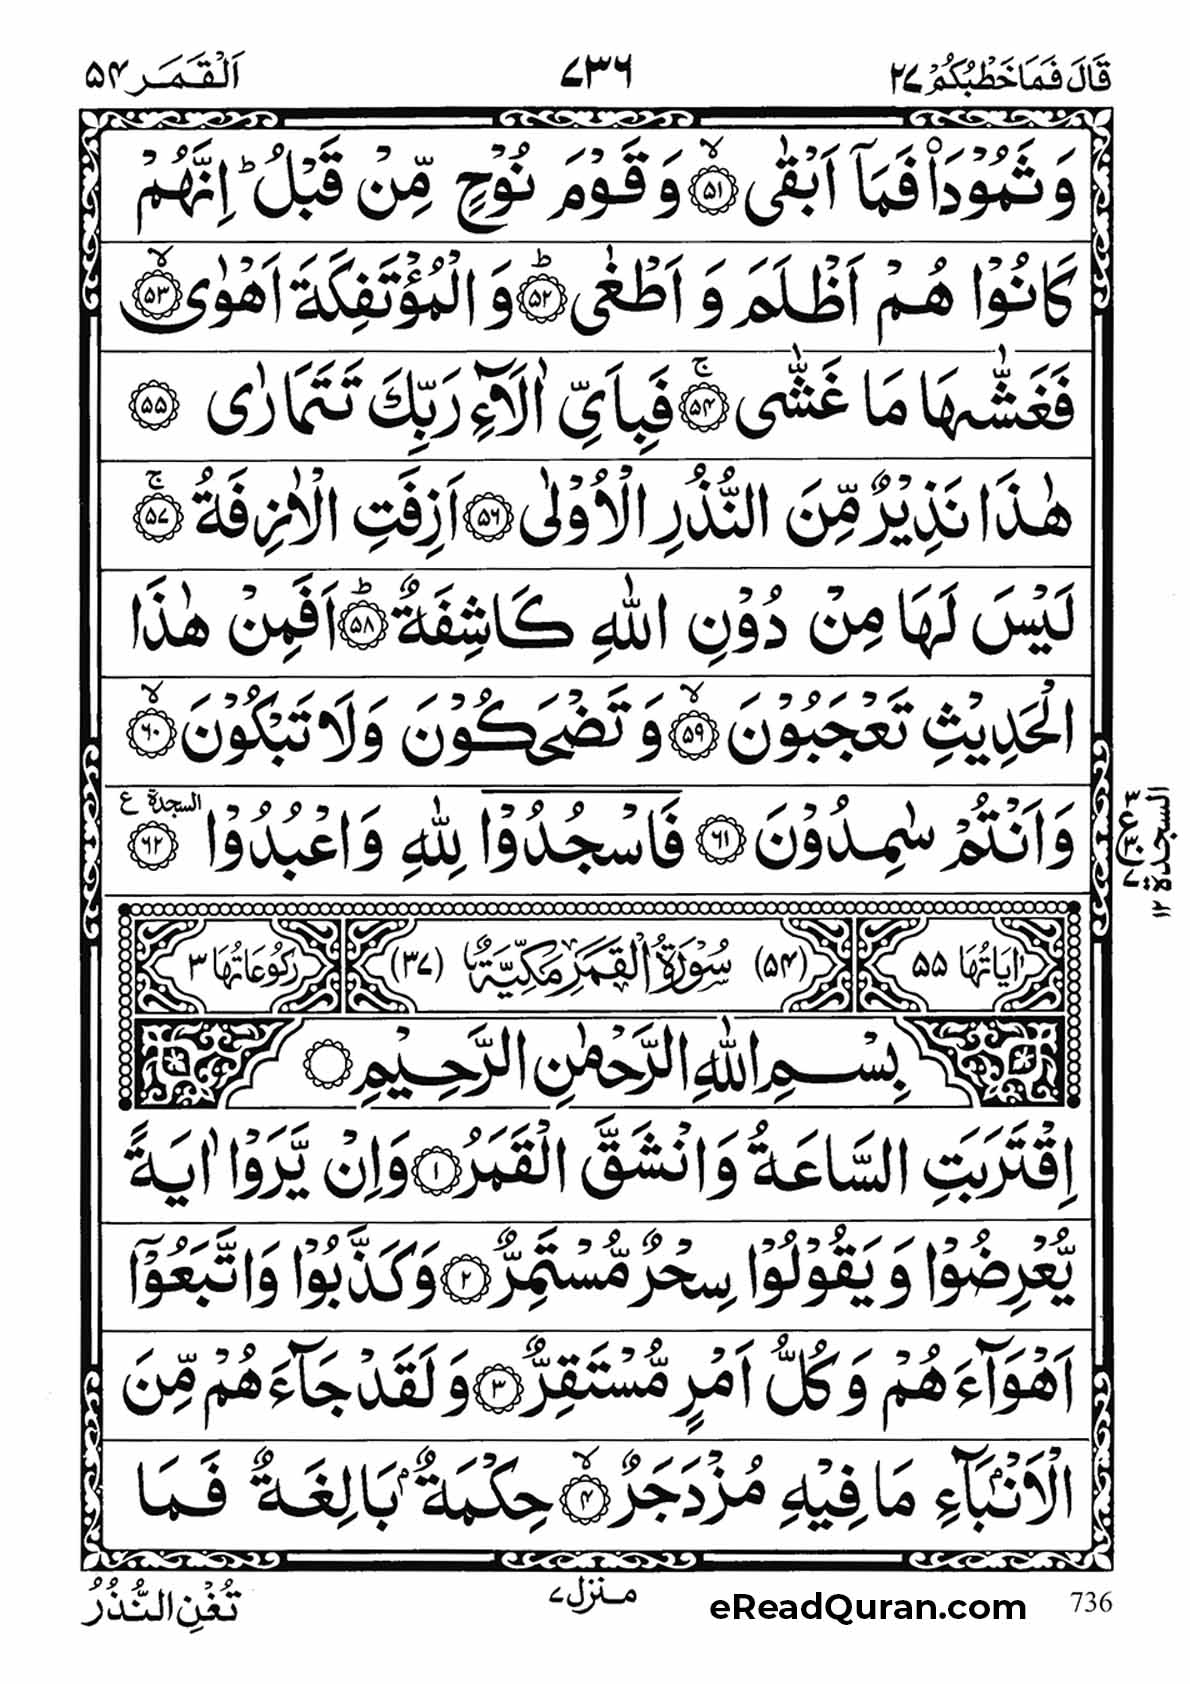 قَالَ فَمَا خَطْبُكُمْ ٢٧ ٧٣٦ اَلْقَمَر ٥٤
وَ ثَمُوْدَا۠ فَمَاۤ اَبْقٰى ﴿٥١﴾ۙ وَ قَوْمَ نُوْحٍ مِّنْ قَبْلُ ؕ اِنَّهُمْ
كَانُوْا هُمْ اَظْلَمَ وَ اَطْغٰى ﴿٥٢﴾ؕ وَ الْمُؤْتَفِكَةَ اَهْوٰى ﴿٥٣﴾ۙ
فَغَشّٰىهَا مَا غَشّٰى ﴿٥٤﴾ۚ فَبِاَيِّ اٰلَآءِ رَبِّكَ تَتَمَارٰى ﴿٥٥﴾
هٰذَا نَذِيْرٌ مِّنَ النُّذُرِ الْاُوْلٰى ﴿٥٦﴾ اَزِفَتِ الْاٰزِفَةُ ﴿٥٧﴾ۚ
لَيْسَ لَهَا مِنْ دُوْنِ اللّٰهِ كَاشِفَةٌ ﴿٥٨﴾ؕ اَفَمِنْ هٰذَا
الْحَدِيْثِ تَعْجَبُوْنَ ﴿٥٩﴾ۙ وَ تَضْحَكُوْنَ وَلَا تَبْكُوْنَ ﴿٦٠﴾ۙ
وَ اَنْتُمْ سٰمِدُوْنَ ﴿٦١﴾ فَاسْجُدُوْا لِلّٰهِ وَ اعْبُدُوْا ﴿٦٢﴾ السجدة ع
السجدة ١٢
اٰيَاتُهَا ٥٥ (٥٤) سُوْرَةُ الْقَمَرِ مَكِّيَّةٌ (٣٧) رُكُوْعَاتُهَا ٣
بِسْمِ اللّٰهِ الرَّحْمٰنِ الرَّحِيْمِ
اِقْتَرَبَتِ السَّاعَةُ وَ انْشَقَّ الْقَمَرُ ﴿١﴾ وَاِنْ يَّرَوْا اٰيَةً
يُّعْرِضُوْا وَ يَقُوْلُوْا سِحْرٌ مُّسْتَمِرٌّ ﴿٢﴾ وَكَذَّبُوْا وَاتَّبَعُوْۤا
اَهْوَآءَهُمْ وَ كُلُّ اَمْرٍ مُّسْتَقِرٌّ ﴿٣﴾ وَ لَقَدْ جَآءَهُمْ مِّنَ
الْاَنْۢبَآءِ مَا فِيْهِ مُزْدَجَرٌ ﴿٤﴾ۙ حِكْمَةٌۢ بَالِغَةٌ فَمَا
تُغْنِ النُّذُرُ منزل ٧ eReadQuran.com 736